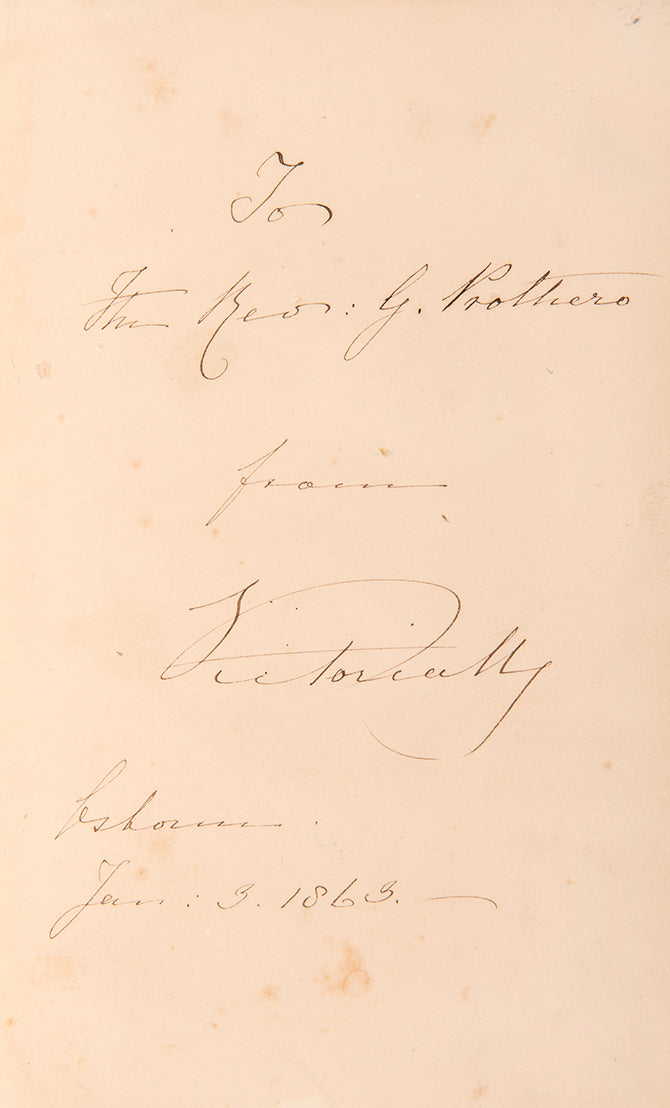 To
The Rev: G. Prothero
from
Victoria R
Osborne.
Jan: 3. 1863. —